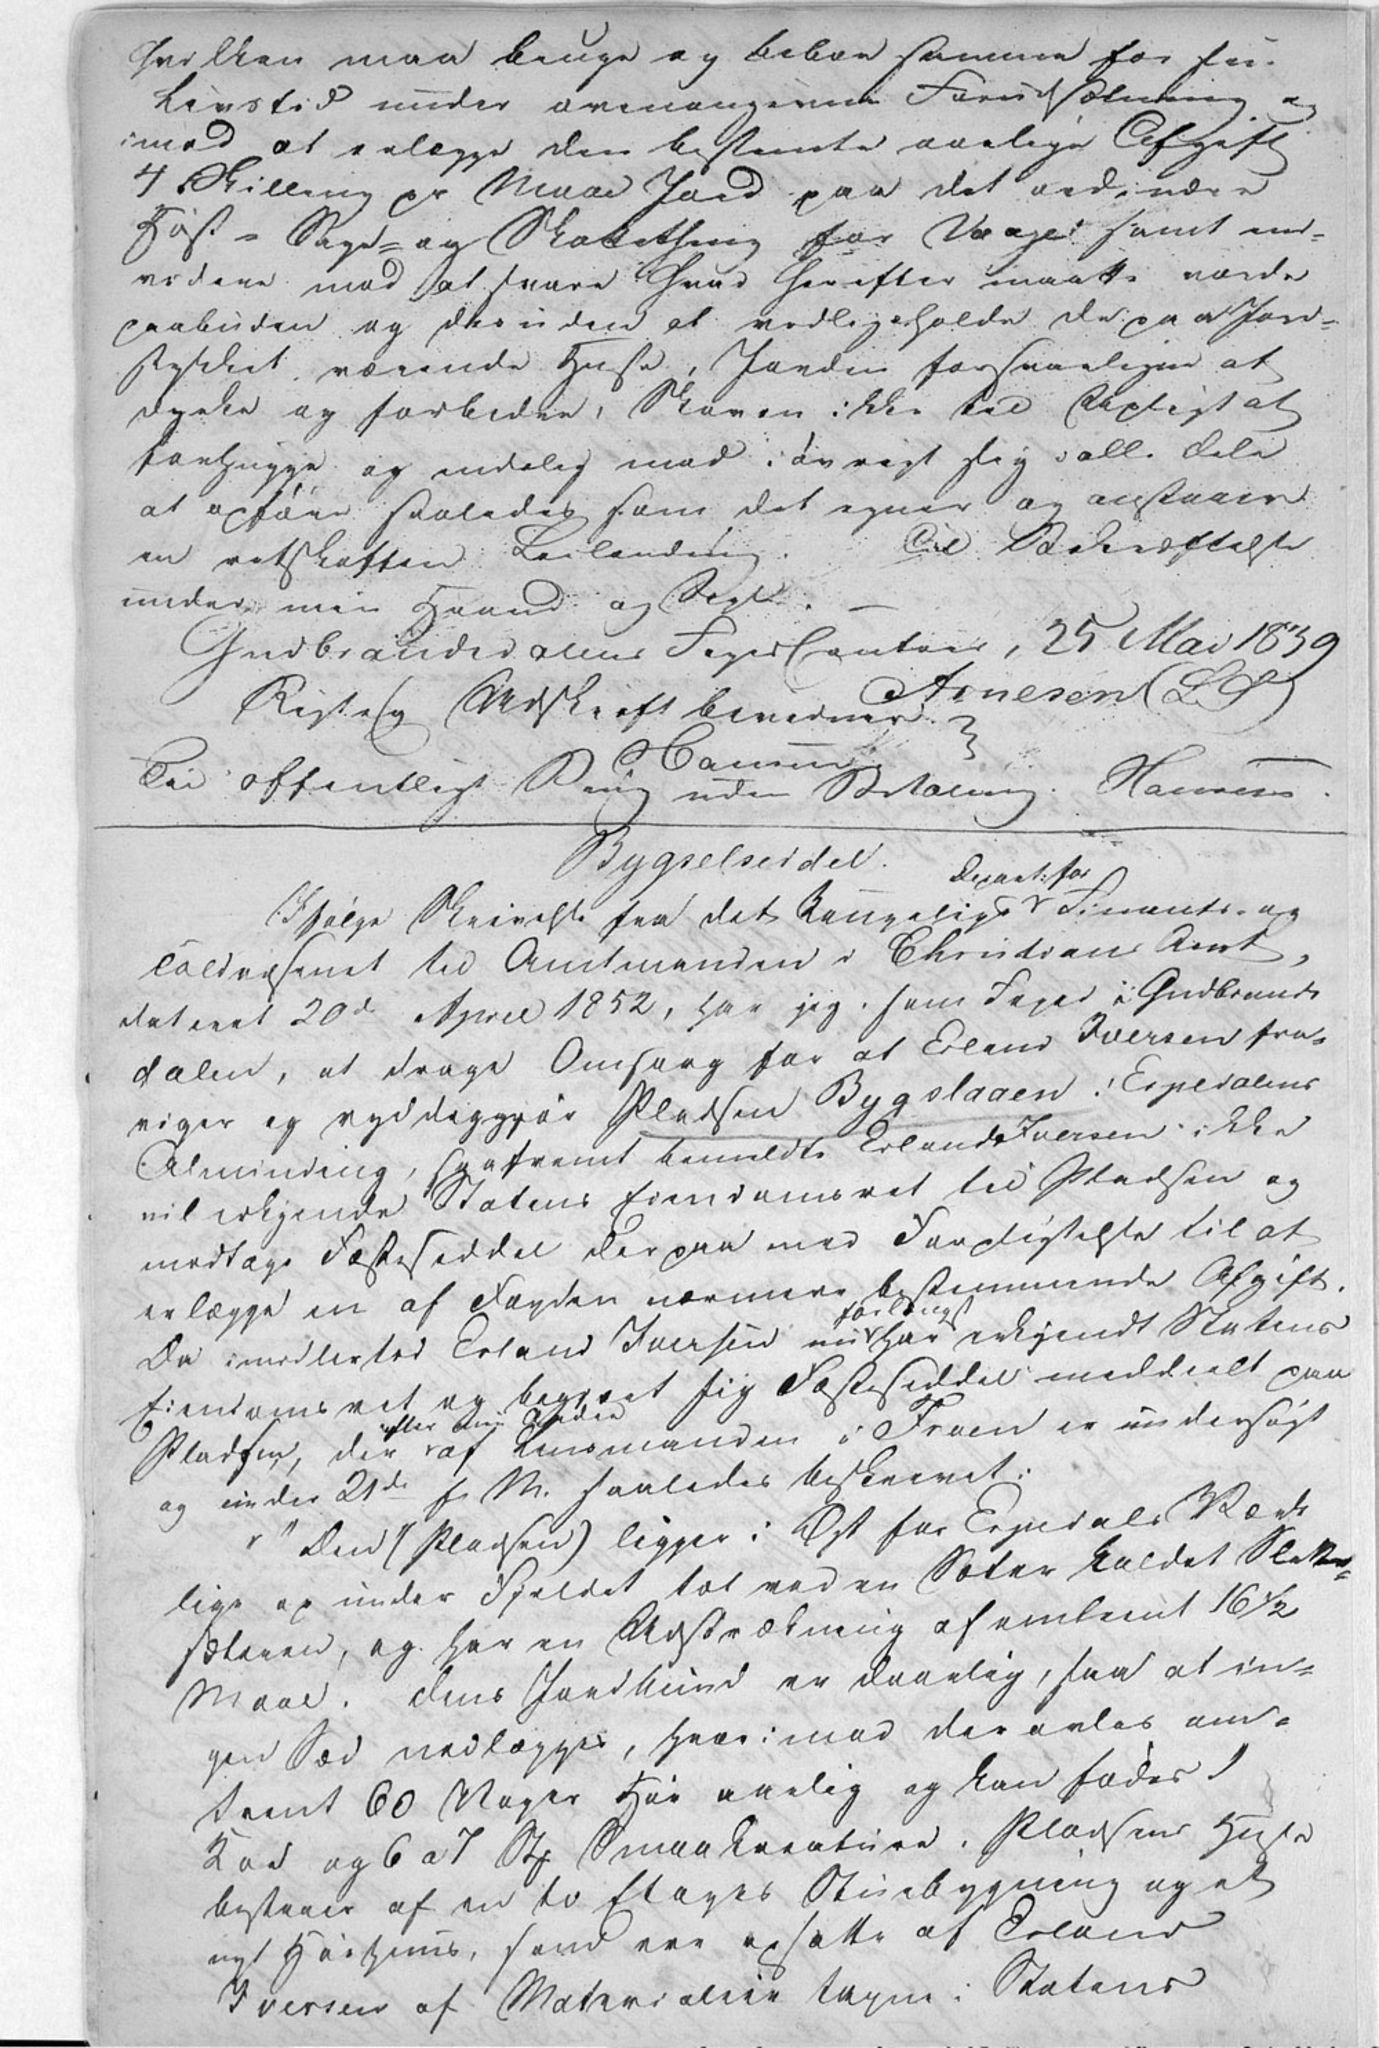 hvilken maa bruge og beboe samme for sin
Livstid under ovenangivne Forudsætning og
imod at erlægge den bestemte aarlige Afgift
4 Skilling pr Maal Jord paa det ordinære
Høst- Sage- og Skattething for Vaage samt end-
videre mod at svare hvad herefter maatte vorde
paabuden og desuden at vedligeholde de paa Jord-
stykket værende Huse, Jorden forsvarligen at
dyrke og forbedre, Skoven ikke til Upligt at
forhugge og endelig mod iøvrigt sig i alle Dele
at opføre saaledes som det egner og anstaaer
en retskaffen Leilending. Til Bekræftelse
under min Haand og Segl. —
Gudbrandsdalens FogedContoir, 25 Mai 1839
Arnesen (L.S.)
Rigtig Udskrift bevidner.
Hansen
Til offentligt Brug uden Betaling. Hansen.
Bygselseddel.
Ifølge Skrivelse fra det Kongelige Depart: for Finants- og
Toldvæsenet til Amtmanden i Christians Amt,
dateret 20de April 1852, har jeg, som Foged i Gudbrands
dalen, at drage Omsorg for at Erland Iversen fra-
viger og ryddiggjør Pladsen Bygslaaen i Espedalens
Alminding, saafremt bemeldte Erland Iversen ikke
vil erkjende Statens Eiendomsret til Pladsen og
modtage Fæsteseddel derpaa med Forpligtelse til at
erlægge en af Fogden nærmere bestemmende Afgift.
Da imidlertid Erland Iversen nu forlængst har erkjendt Statens
Eiendomsret og begjæret sig Fæsteseddel meddeelt paa
Pladsen, der efter min Ordre af Lensmanden i Froen er undersøgt
og under 21de f. M. saaledes beskrevet:
"Den (Pladsen) ligger i Øst for Espedals Værk
lige op under Fjeldet tæt ved en Sæter kaldet Sletten-
sæteren, og har en Udstrækning af omtrent 16 1/2
Maal. Dens Jordbund er daarlig, saa at in-
gen Sæd nedlægges, hvorimod der avles om-
trent 60 Voger Høe aarlig og kan fødes 1
Koe og 6 a 7 Stk Smaakreature. Pladsens Huse
bestaaer af en to Etages Stuebygning og et
nyt Høehuus, som ere opsatte af Erland
Iversen af Materialier tagne i Statens